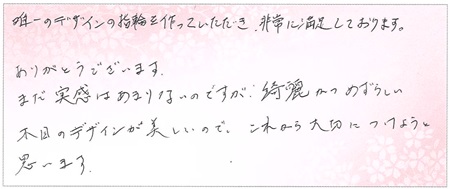 唯一のデザインの指輪を作っていただき、非常に満足しております。
ありがとうございます。
まだ実感はあまりないのですが、綺麗かつめずらしい
木目のデザインが美しいので、これから大切につけようと
思います。